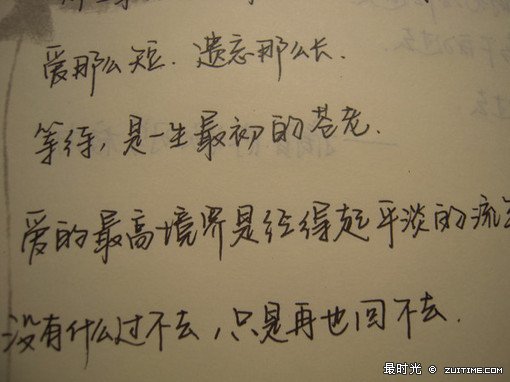 爱那么短.遗忘那么长.
等待,是一生最初的苍老.
爱的最高境界是经得起平淡的流
没有什么过不去,只是再也回不去.
最时光 © ZUITIME.COM